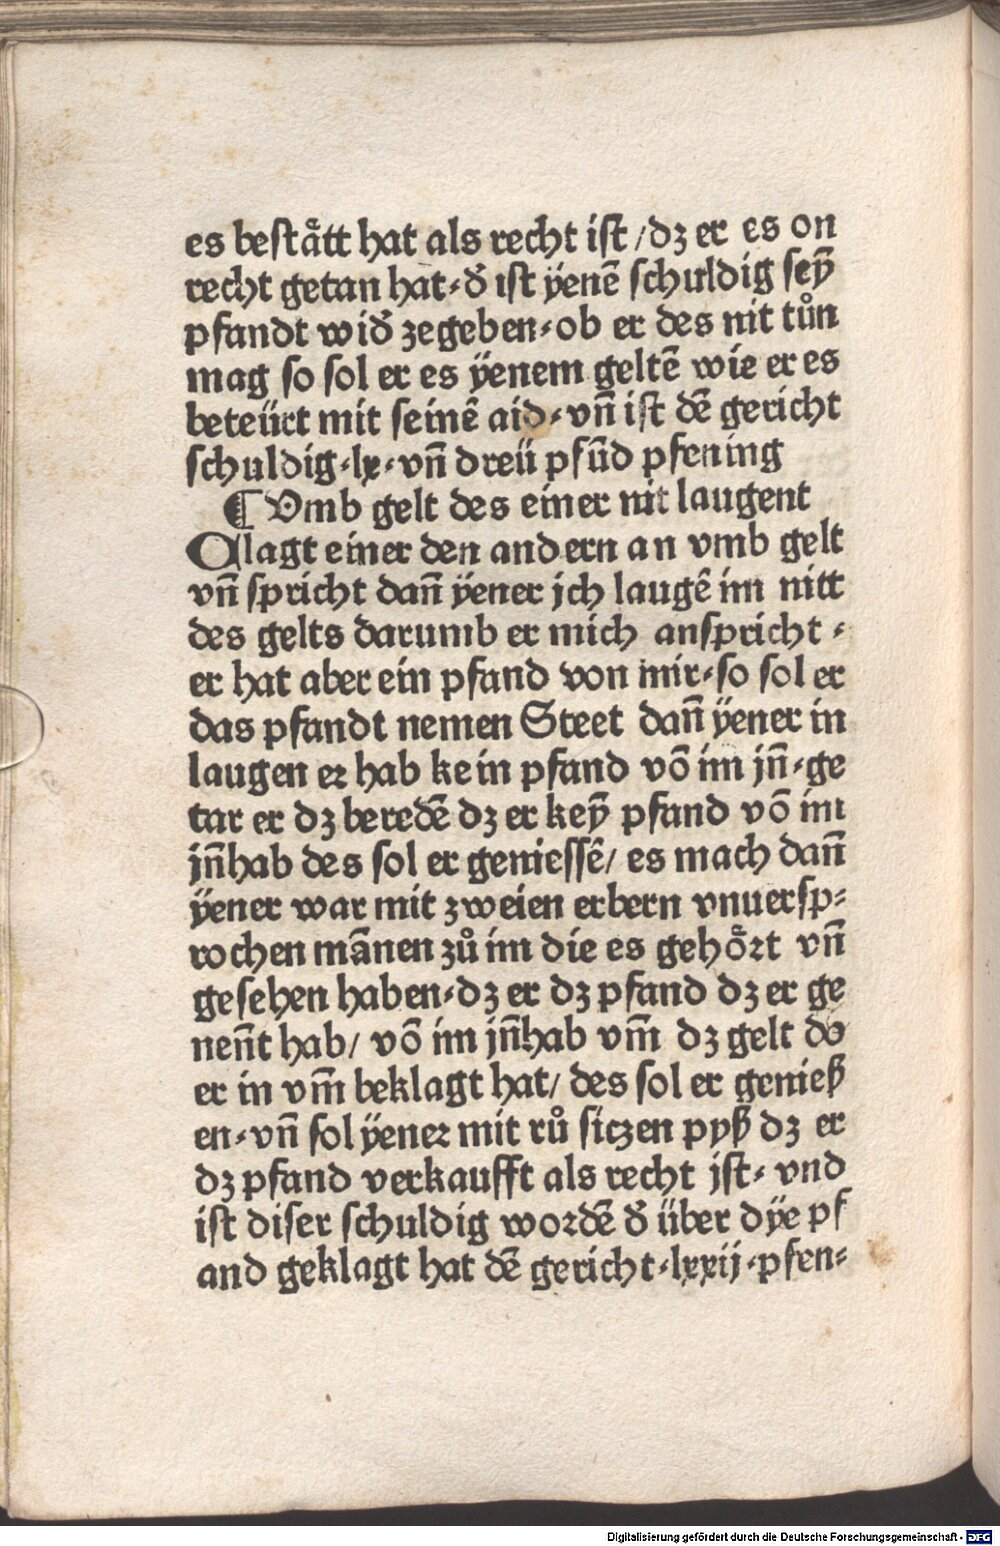 es bestått hat als recht ist / dz er es on
recht getan hat ⸗ đ ist ÿenē schuldig seÿ
pfandt wiđ zegeben ⸗ ob er des nit tůn
mag so sol er es ÿenem geltē wie er es
beteürt mit seinē aid ⸗ vn̄ ist dē gericht
schuldig ⸗ lx ⸗ vn̄ dreü pfūd pfening
¶ Vmb gelt des einer nit laugent
Clagt einer den andern an vmb gelt
vn̄ spricht dan̄ ÿener jch laugē im nitt
des gelts darumb er mich anspricht ⸗
er hat aber ein pfand von mir ⸗ so sol er
das pfandt nemen Steet dan̄ ÿener in
laugen er hab kein pfand vō im jn̄ ⸗ ge
tar er dz beredē dz er keÿ pfand vō im
jn̄hab des sol er geniessē / es mach dan̄
ÿener war mit zweien erbern vnuersp⸗
rochen mānen zů im die es gehȯ̈rt vn̄
gesehen haben ⸗ dz er dz pfand dz er ge
nen̄t hab / vō im jn̄hab vm̄ dz gelt do
er in vm̄ beklagt hat / des sol er genieß
en ⸗ vn̄ sol ÿener mit rů sitzen pyß dz er
dz pfand verkaufft als recht jst ⸗ vnd
ist diser schuldig wordē đ über dÿe pf
and geklagt hat dē gericht ⸗ lxxij ⸗ pfen⸗
Digitalisierung gefördert durch die Deutsche Forschungsgemeinschaft - DFG